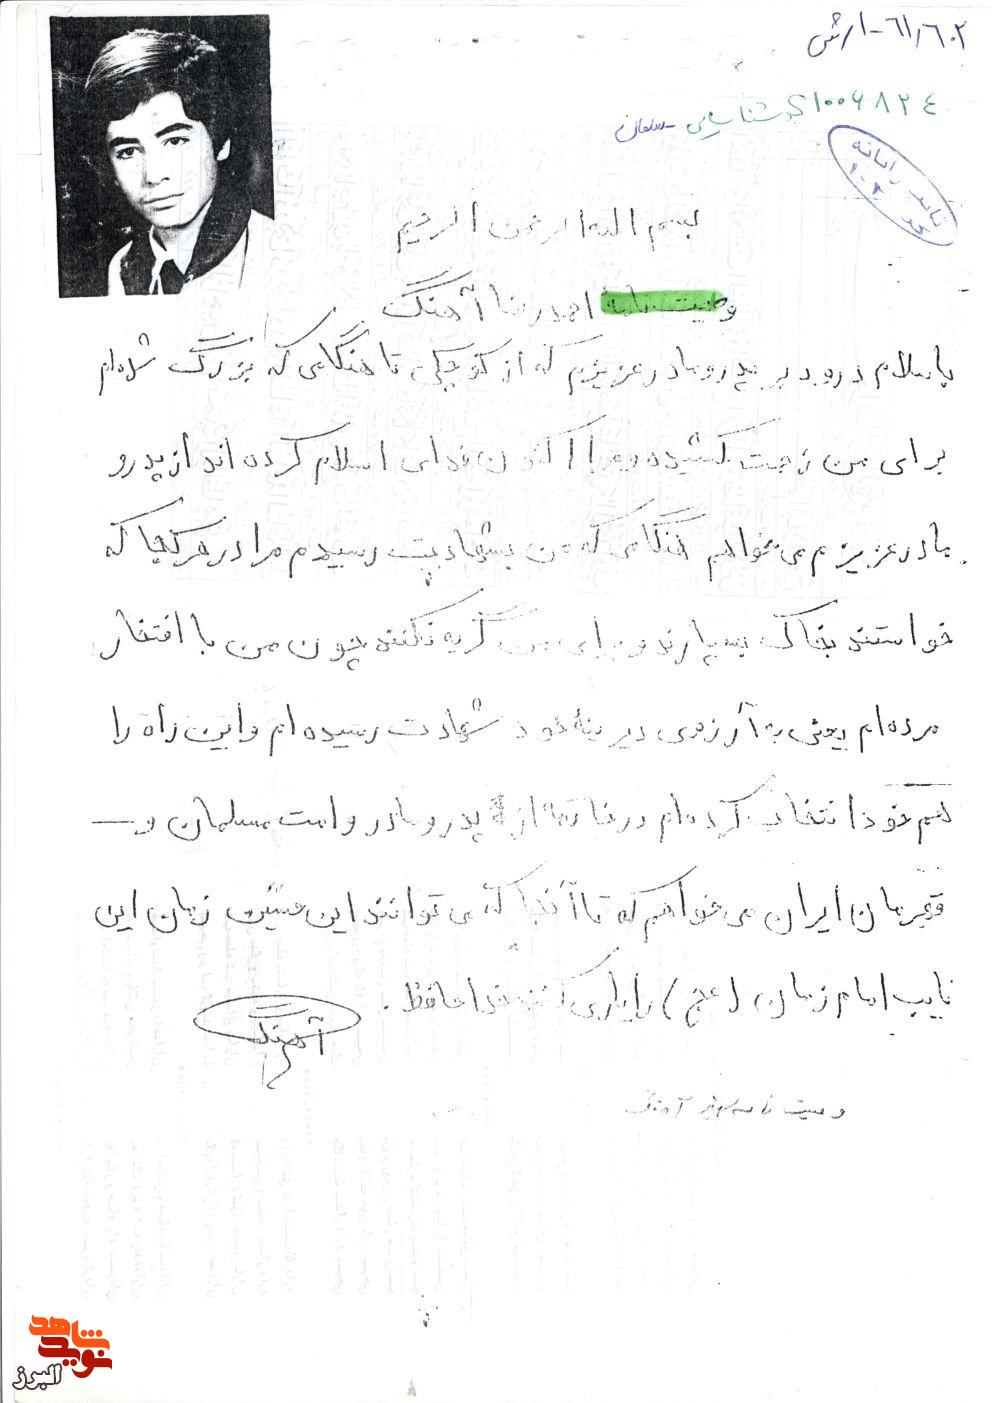 ۶۱/۶۰۲-ارتش
۱۰۰۶۸۲۴ کد شناسایی
تائید رایانه
بسم الله الرحمن الرحیم
وصیت نامه احمدرضا آهنگ
باسلام درود بر پدرومادر عزیزم که از کوچکی تا هنگامی که بزرگ شده‌ام
برای من زحمت کشیده و مرا اکنون فدای اسلام کرده اند از پدر و
مادر عزیزم می‌خواهم هنگامی که من بشهادت رسیدم مرا در هر کجا که
خواستند بخاک بسپارند و برای من گریه نکنند چون من با افتخار
مرده‌ام یعنی به آرزوی دیرینهٔ خود شهادت رسیده ام و این راه را
هم خودانتخاب کرده‌ام در خاتمه از پدر و مادر و امت مسلمان و —
قهرمان ایران می‌خواهم که تا آنجا که می توانند این خمینی زمان این
نایب امام زمان (عج) را یاری کنند خداحافظ .
آهنگ
وصیت نامه آهنگ
شاهد
نوید
البرز